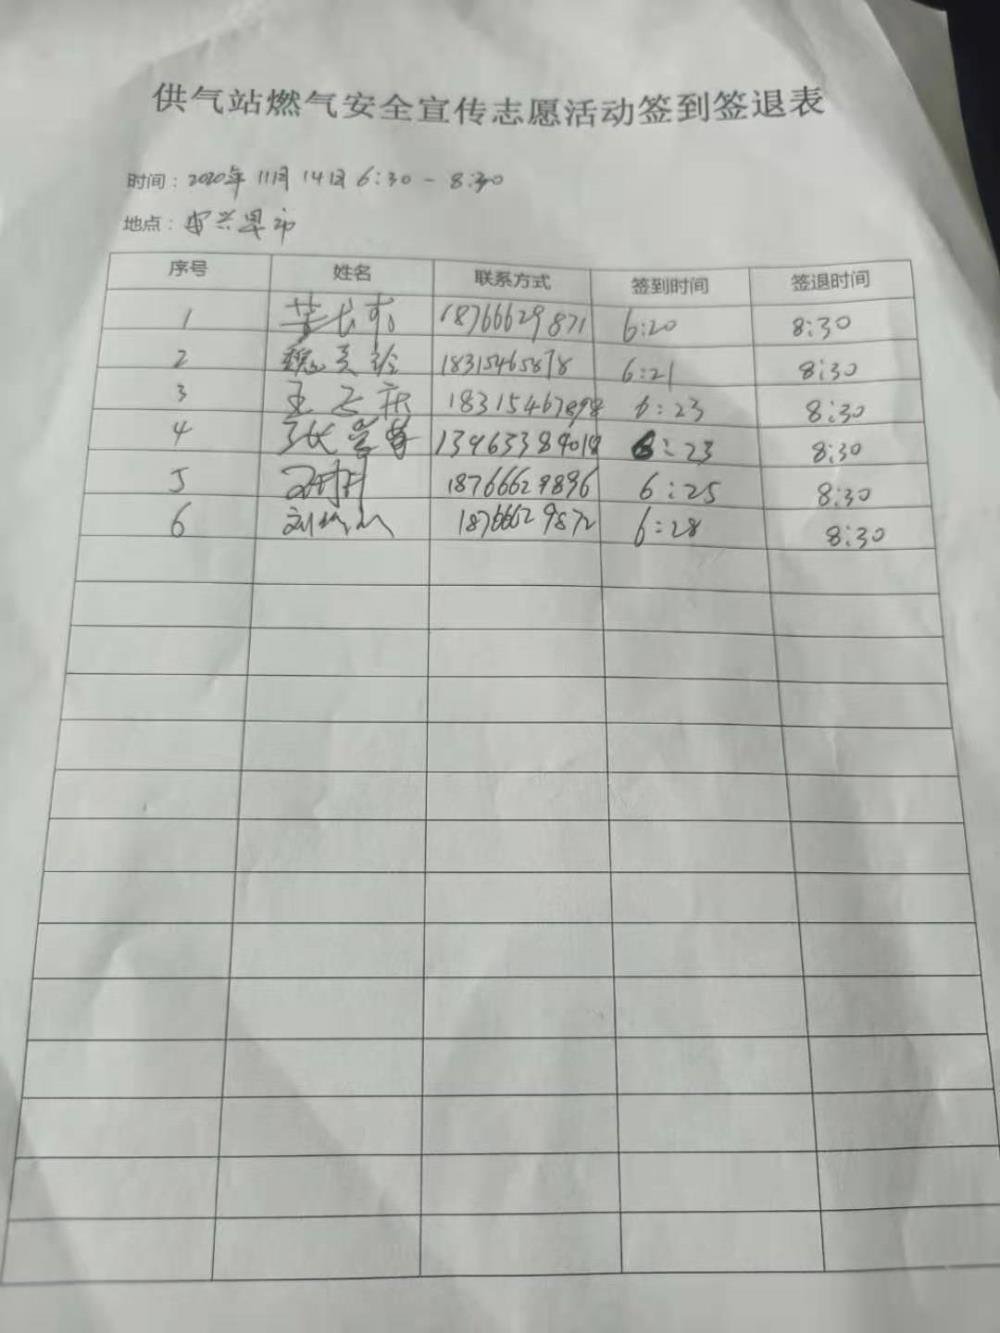 供气站燃气安全宣传志愿活动签到签退表
时间：2020年11月14日6:30-8:30
地点：安兴早市
序号 姓名 联系方式 签到时间 签退时间
1 18766629871 6:20 8:30
2 魏 18315465878 6:21 8:30
3 王 18315467898 6:23 8:30
4 张 13963384018 6:23 8:30
5 18766629896 6:25 8:30
6 刘 18766629872 6:28 8:30